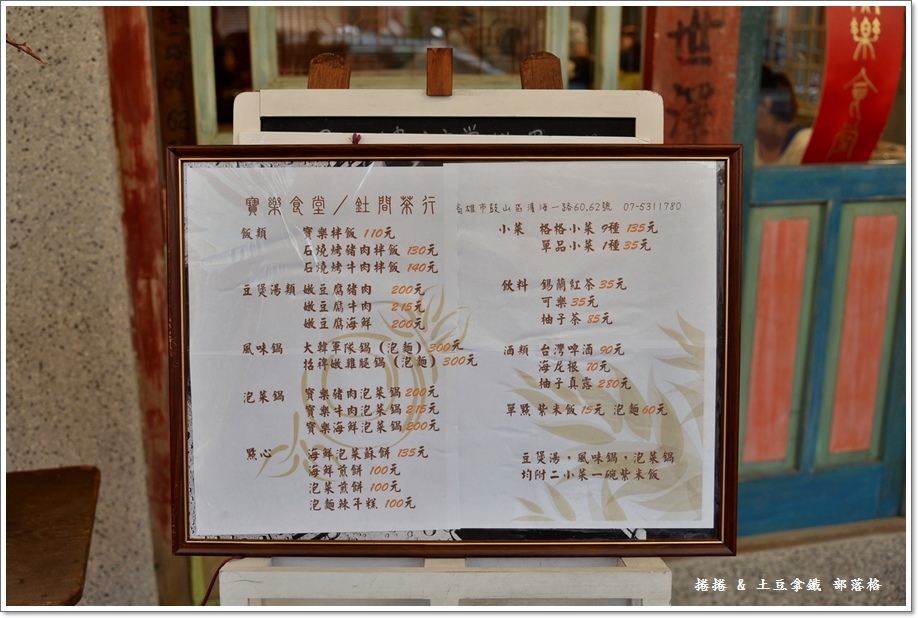 寶樂食堂/釷間茶行
高雄市鼓山區濱海一路60.62號 07-5311780
飯類 寶樂拌飯 110元
石燒烤豬肉拌飯 130元
石燒烤牛肉拌飯 140元
豆煲湯類 嫩豆腐豬肉 200元
嫩豆腐牛肉 215元
嫩豆腐海鮮 200元
風味鍋 大韓軍隊鍋(泡麵)300元
招牌嫩雞腿鍋(泡麵)300元
泡菜鍋 寶樂豬肉泡菜鍋200元
寶樂牛肉泡菜鍋215元
寶樂海鮮泡菜鍋200元
點心 海鮮泡菜蘇餅 135元
海鮮煎餅 100元
泡菜煎餅 100元
泡麵辣年糕 100元
小菜 格格小菜 9種 135元
單品小菜 1種 35元
飲料 錫蘭紅茶 35元
可樂 35元
柚子茶 85元
酒類 台灣啤酒 90元
海尼根 70元
柚子真露 280元
單點 紫米飯 15元 泡麵 60元
豆煲湯,風味鍋,泡菜鍋
均附二小菜一碗紫米飯
世澤
樂食堂
捲捲 & 土豆拿鐵 部落格